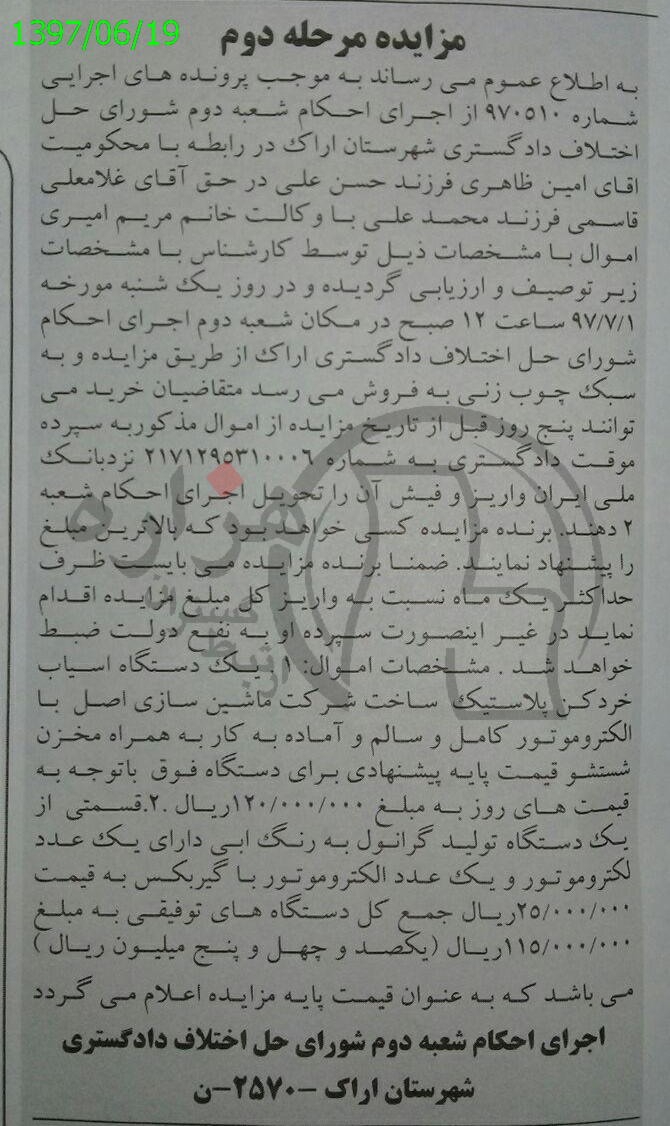 1397/06/19
مزایده مرحله دوم
به اطلاع عموم می رساند به موجب پرونده های اجرایی
شماره ۹۷۰۵۱۰ از اجرای احکام شعبه دوم شورای حل
اختلاف دادگستری شهرستان اراک در رابطه با محکومیت
اقای امین ظاهری فرزند حسن علی در حق آقای غلامعلی
قاسمی فرزند محمد علی با وکالت خانم مریم امیری
اموال با مشخصات ذیل توسط کارشناس با مشخصات
زیر توصیف و ارزیابی گردیده و در روز یک شنبه مورخه
۹۷/۷/۱ ساعت ۱۲ صبح در مکان شعبه دوم اجرای احکام
شورای حل اختلاف دادگستری اراک از طریق مزایده و به
سبک چوب زنی به فروش می رسد متقاضیان خرید می
توانند پنج روز قبل از تاریخ مزایده از اموال مذکوربه سپرده
موقت دادگستری به شماره ۲۱۷۱۲۹۵۳۱۰۰۰۶ نزدبانک
ملی ایران واریز و فیش آن را تحویل اجرای احکام شعبه
۲ دهند. برنده مزایده کسی خواهد بود که بالاترین مبلغ
را پیشنهاد نمایند. ضمنا برنده مزایده می بایست ظرف
حداکثر یک ماه نسبت به واریز کل مبلغ مزایده اقدام
نماید در غیر اینصورت سپرده او به نفع دولت ضبط
خواهد شد . مشخصات اموال: ۱ یک دستگاه اسیاب
خردکن پلاستیک ساخت شرکت ماشین سازی اصل با
الکتروموتور کامل و سالم و آماده به کار به همراه مخزن
شستشو قیمت پایه پیشنهادی برای دستگاه فوق باتوجه به
قیمت های روز به مبلغ ۱۲۰/۰۰۰/۰۰۰ریال .۲.قسمتی از
یک دستگاه تولید گرانول به رنگ ابی دارای یک عدد
لکتروموتور و یک عدد الکتروموتور با گیربکس به قیمت
۲۵/۰۰۰/۰۰۰ریال جمع کل دستگاه های توفیقی به مبلغ
۱۱۵/۰۰۰/۰۰۰ریال (یکصد و چهل و پنج میلیون ریال )
می باشد که به عنوان قیمت پایه مزایده اعلام می گردد
اجرای احکام شعبه دوم شورای حل اختلاف دادگستری
شهرستان اراک -۲۵۷۰-ن
هزاره